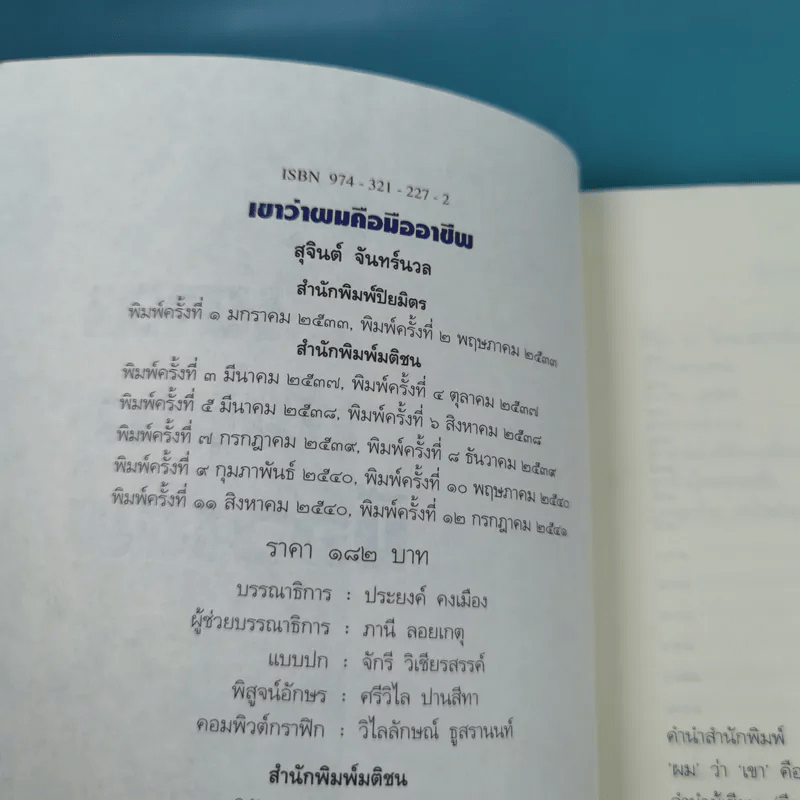 ISBN 974 - 321 - 227 - 2
เขาว่าผมคือมืออาชีพ
สุจินต์ จันทร์นวล
สำนักพิมพ์ปิยมิตร
พิมพ์ครั้งที่ ๑ มกราคม ๒๕๓๓, พิมพ์ครั้งที่ ๒ พฤษภาคม ๒๕๓๓
สำนักพิมพ์มติชน
พิมพ์ครั้งที่ ๓ มีนาคม ๒๕๓๗, พิมพ์ครั้งที่ ๔ ตุลาคม ๒๕๓๗
พิมพ์ครั้งที่ ๕ มีนาคม ๒๕๓๘, พิมพ์ครั้งที่ ๖ สิงหาคม ๒๕๓๘
พิมพ์ครั้งที่ ๗ กรกฎาคม ๒๕๓๙, พิมพ์ครั้งที่ ๘ ธันวาคม ๒๕๓๙
พิมพ์ครั้งที่ ๙ กุมภาพันธ์ ๒๕๔๐, พิมพ์ครั้งที่ ๑๐ พฤษภาคม ๒๕๔๐
พิมพ์ครั้งที่ ๑๑ สิงหาคม ๒๕๔๐, พิมพ์ครั้งที่ ๑๒ กรกฎาคม ๒๕๔๑
ราคา ๑๘๒ บาท
บรรณาธิการ : ประยงค์ คงเมือง
ผู้ช่วยบรรณาธิการ : ภานี ลอยเกตุ
แบบปก : จักรี วิเชียรสรรค์
พิสูจน์อักษร : ศรีวิไล ปานสีทา
คอมพิวต์กราฟิก : วิไลลักษณ์ ธูสรานนท์
สำนักพิมพ์มติชน
คำนำสำนักพิมพ์
'ผม' ว่า 'เขา' คือ